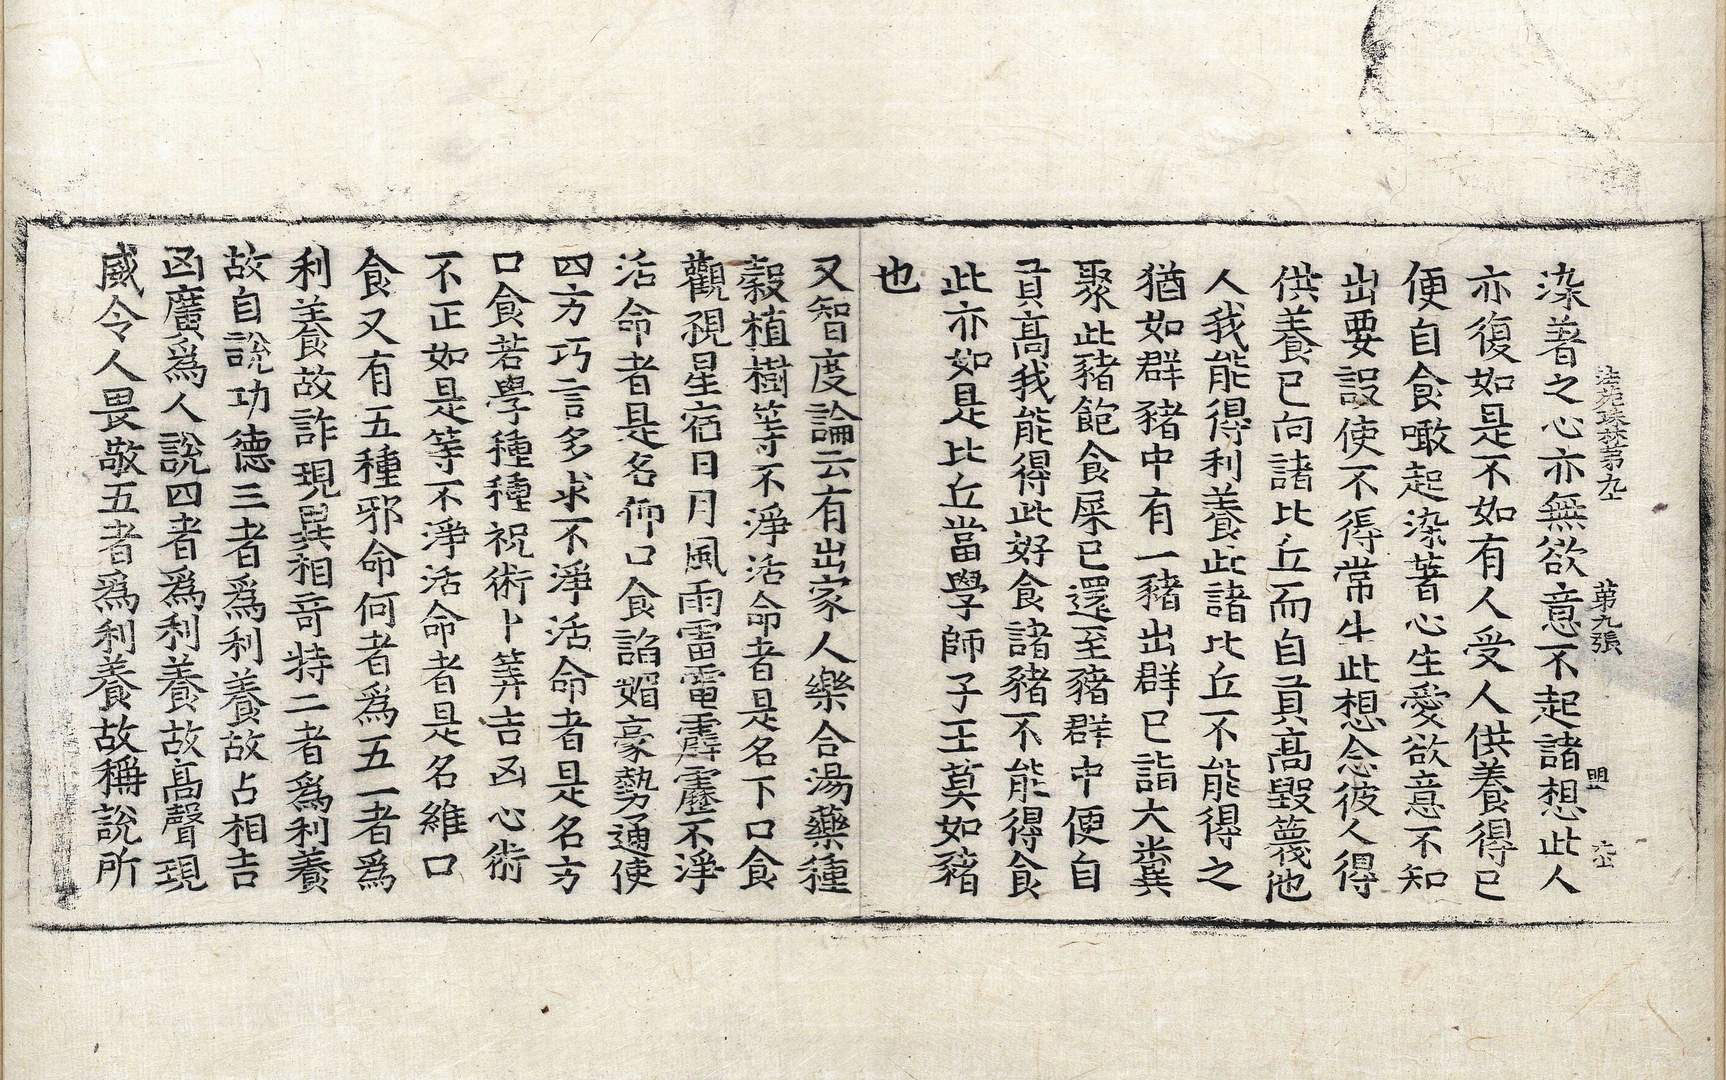 法苑珠林第九十 第九張 明
染著之心亦無欲意不起諸想此人
亦復如是不如有人受人供養得已
便自食噉起染著心生愛欲意不知
出要設使不得常生此想念彼人得
供養已向諸比丘而自貢高毀蔑他
人我能得利養此諸比丘不能得之
猶如群豬中有一豬出群已詣大糞
聚此豬飽食屎已還至豬群中便自
貢高我能得此好食諸豬不能得食
此亦如是比丘當學師子王莫如豬
也
又智度論云有出家人樂合湯藥種
穀植樹等不淨活命者是名下口食
觀視星宿日月風雨雷電霹靂不淨
活命者是名仰口食諂媚豪勢通使
四方巧言多求不淨活命者是名方
口食若學種種祝術卜筭吉凶心術
不正如是等不淨活命者是名維口
食又有五種邪命何者為五一者為
利養故詐現異相奇特二者為利養
故自說功德三者為利養故占相吉
凶廣為人說四者為利養故高聲現
威令人畏敬五者為利養故稱說所